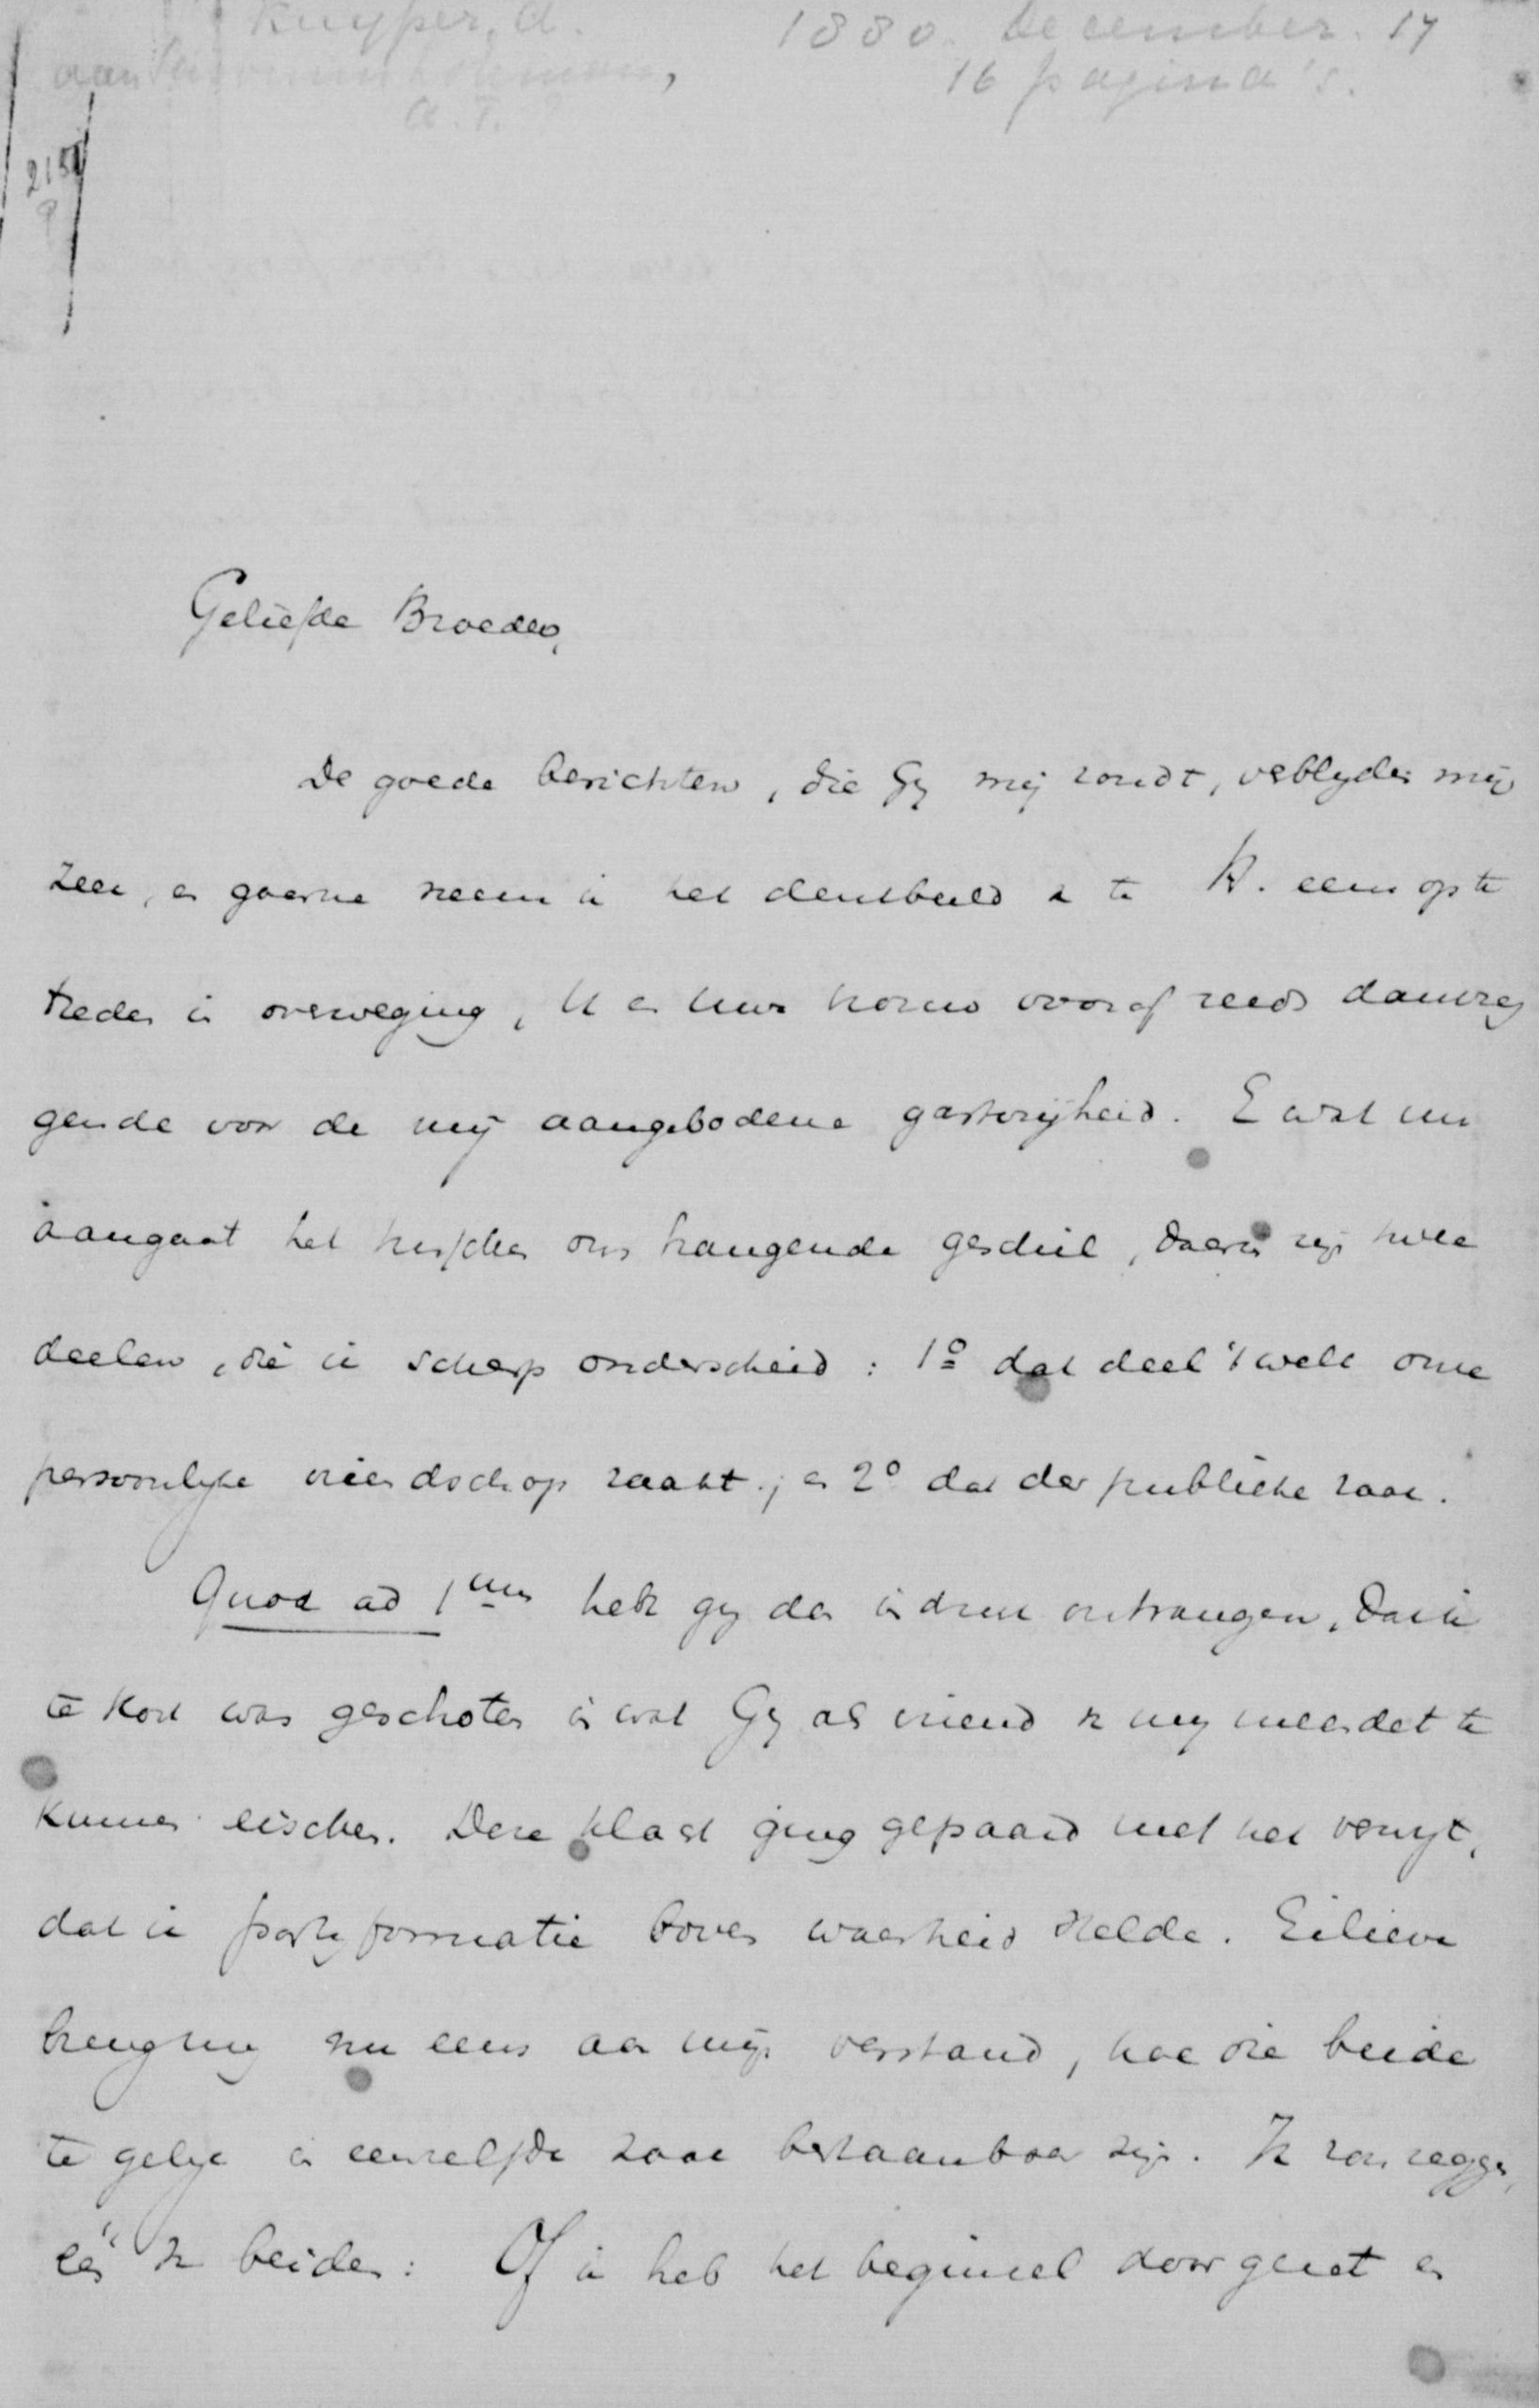 Kuyper, A. 1880. December. 17
aan 16 pagina's.
2157
Geliefde Broeder,
De goede berichten, die Gij mij zondt, verblijden mij
zeer, en gaarne neem ik het denkbeeld om te K. eens op te
treden in overweging, U en Uwe vooraf reeds dankzeg
gende voor de mij aangebodene gastvrijheid. En wat nu
aangaat het tusschen ons hangende geschil, daarin zijn twee
deelen, die ik scherp onderscheid: 1º dat deel 't welk onze
persoonlijke vriendschap raakt; en 2º dat der publieke zaak.
Quod ad 1um hebt gij den indruk ontvangen, dat ik
te kort was geschoten in wat Gij als vriend van mij meendet te
kunnen eischen. Deze klacht ging gepaard met het verwijt,
dat ik partijformatie boven waarheid stelde. Eilieve
breng mij nu eens aan mijn verstand, hoe die beide
te gelijk in eenzelfde zaak bestaanbaar zijn. Ik zou zeggen,
één van beiden: Of ik heb het beginsel doorgezet en